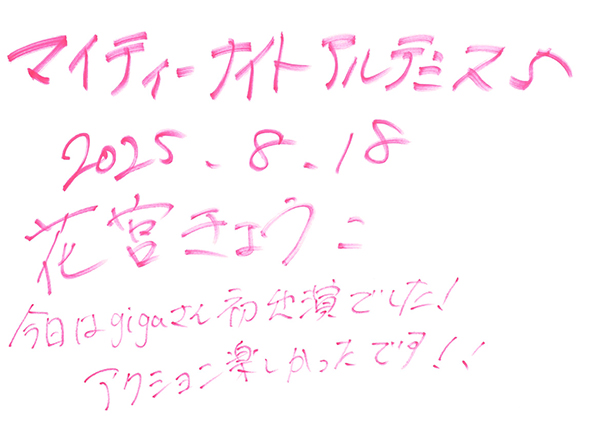 マイティーナイトアルテミス♪
2025.8.18
花宮きょうこ
今日はgigaさん初出演でした!
アクション楽しかったです!!